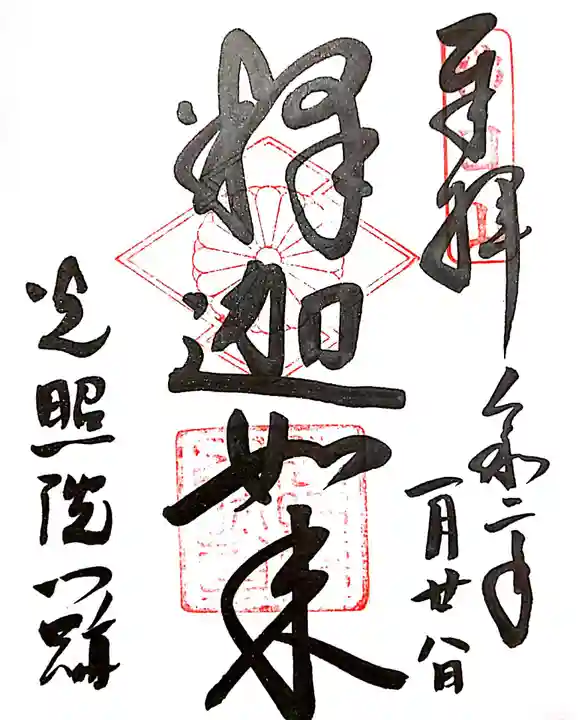 奉拝
令和二年
一月廿八日
釋迦如来
光照院跡